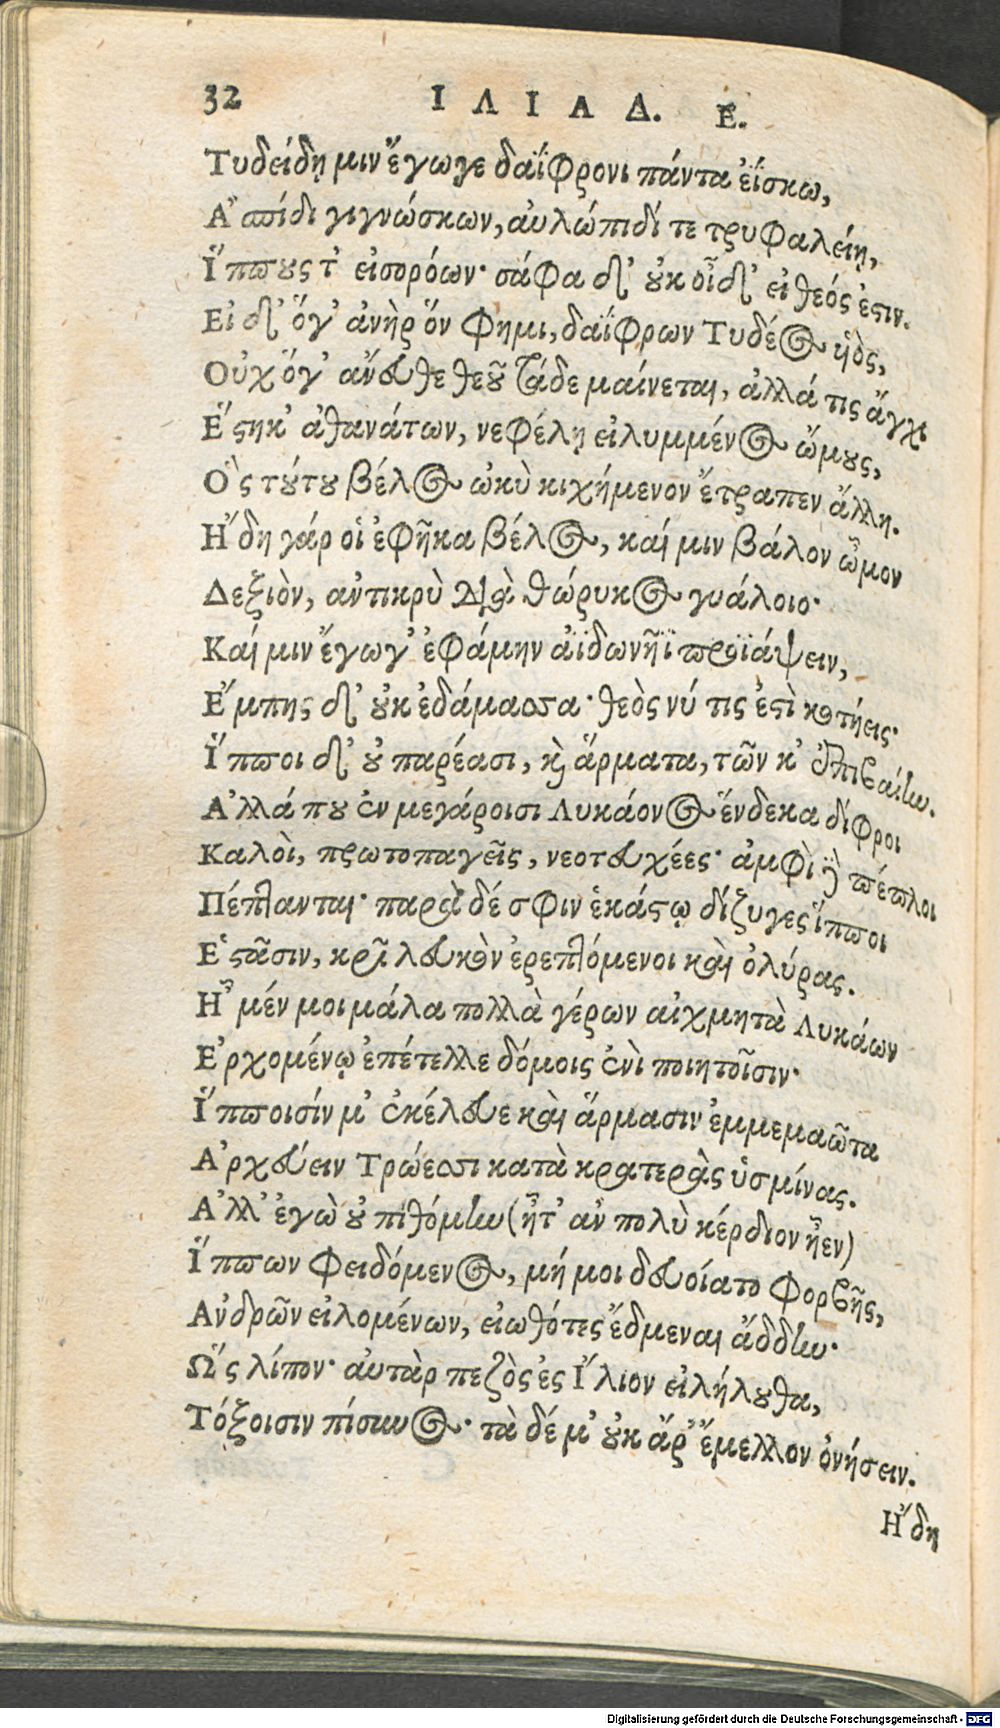 32 ΙΛΙΑΔ. Ε.
Τυδείδῃ μιν ἔγωγε δαΐφρονι πάντα ἐΐσκω,
Ἀσπίδι γιγνώσκων, αὐλώπιδί τε τρυφαλείῃ,
Ἵππους τ' εἰσορόων· σάφα δ' οὐκ οἶδ' εἰ θεός ἐστιν.
Εἰ δ' ὅγ' ἀνὴρ ὅν φημι, δαΐφρων Τυδέος υἱὸς,
Οὐχ ὅγ' ἄνευθε θεοῦ τάδε μαίνεται, ἀλλά τις ἄγχι
Ἕστηκ' ἀθανάτων, νεφέλῃ εἰλυμμένος ὤμους,
Ὃς τούτου βέλος ὠκὺ κιχήμενον ἔτραπεν ἄλλη.
Ἤδη γάρ οἱ ἐφῆκα βέλος, καί μιν βάλον ὦμον
Δεξιὸν, ἀντικρὺ διὰ θώρυκος γυάλοιο·
Καί μιν ἔγωγ' ἐφάμην ἀϊδωνῆϊ προϊάψειν,
Ἔμπης δ' οὐκ ἐδάμασσα· θεὸς νύ τις ἐστὶ κοτήεις·
Ἵπποι δ' οὐ παρέασι, καὶ ἅρματα, τῶν κ' ἐπιβαίην.
Ἀλλά που ἐν μεγάροισι Λυκάονος ἕνδεκα δίφροι
Καλοὶ, πρωτοπαγεῖς, νεοτευχέες· ἀμφὶ δὲ πέπλοι
Πέπτανται· παρὰ δέ σφιν ἑκάστῳ δίζυγες ἵπποι
Ἑστᾶσιν, κρῖ λευκὸν ἐρεπτόμενοι καὶ ὀλύρας.
Ἦ μέν μοι μάλα πολλὰ γέρων αἰχμητὰ Λυκάων
Ἐρχομένῳ ἐπέτελλε δόμοις ἐνὶ ποιητοῖσιν·
Ἵπποισίν μ' ἐκέλευε καὶ ἅρμασιν ἐμμεμαῶτα
Ἀρχεύειν Τρώεσσι κατὰ κρατερὰς ὑσμίνας.
Ἀλλ' ἐγὼ οὐ πιθόμην (ἦτ' ἀν πολὺ κέρδιον ἦεν)
Ἵππων φειδόμενος, μή μοι δευοίατο φορβῆς,
Ἀνδρῶν εἰλομένων, εἰωθότες ἔδμεναι ἄδδην·
Ὣς λίπον· αὐτὰρ πεζὸς ἐς Ἴλιον εἰλήλουθα,
Τόξοισιν πίσυνος· τὰ δέ μ' οὐκ ἄρ' ἔμελλον ὀνήσειν.
Ἤδη
Digitalisierung gefördert durch die Deutsche Forschungsgemeinschaft - DFG